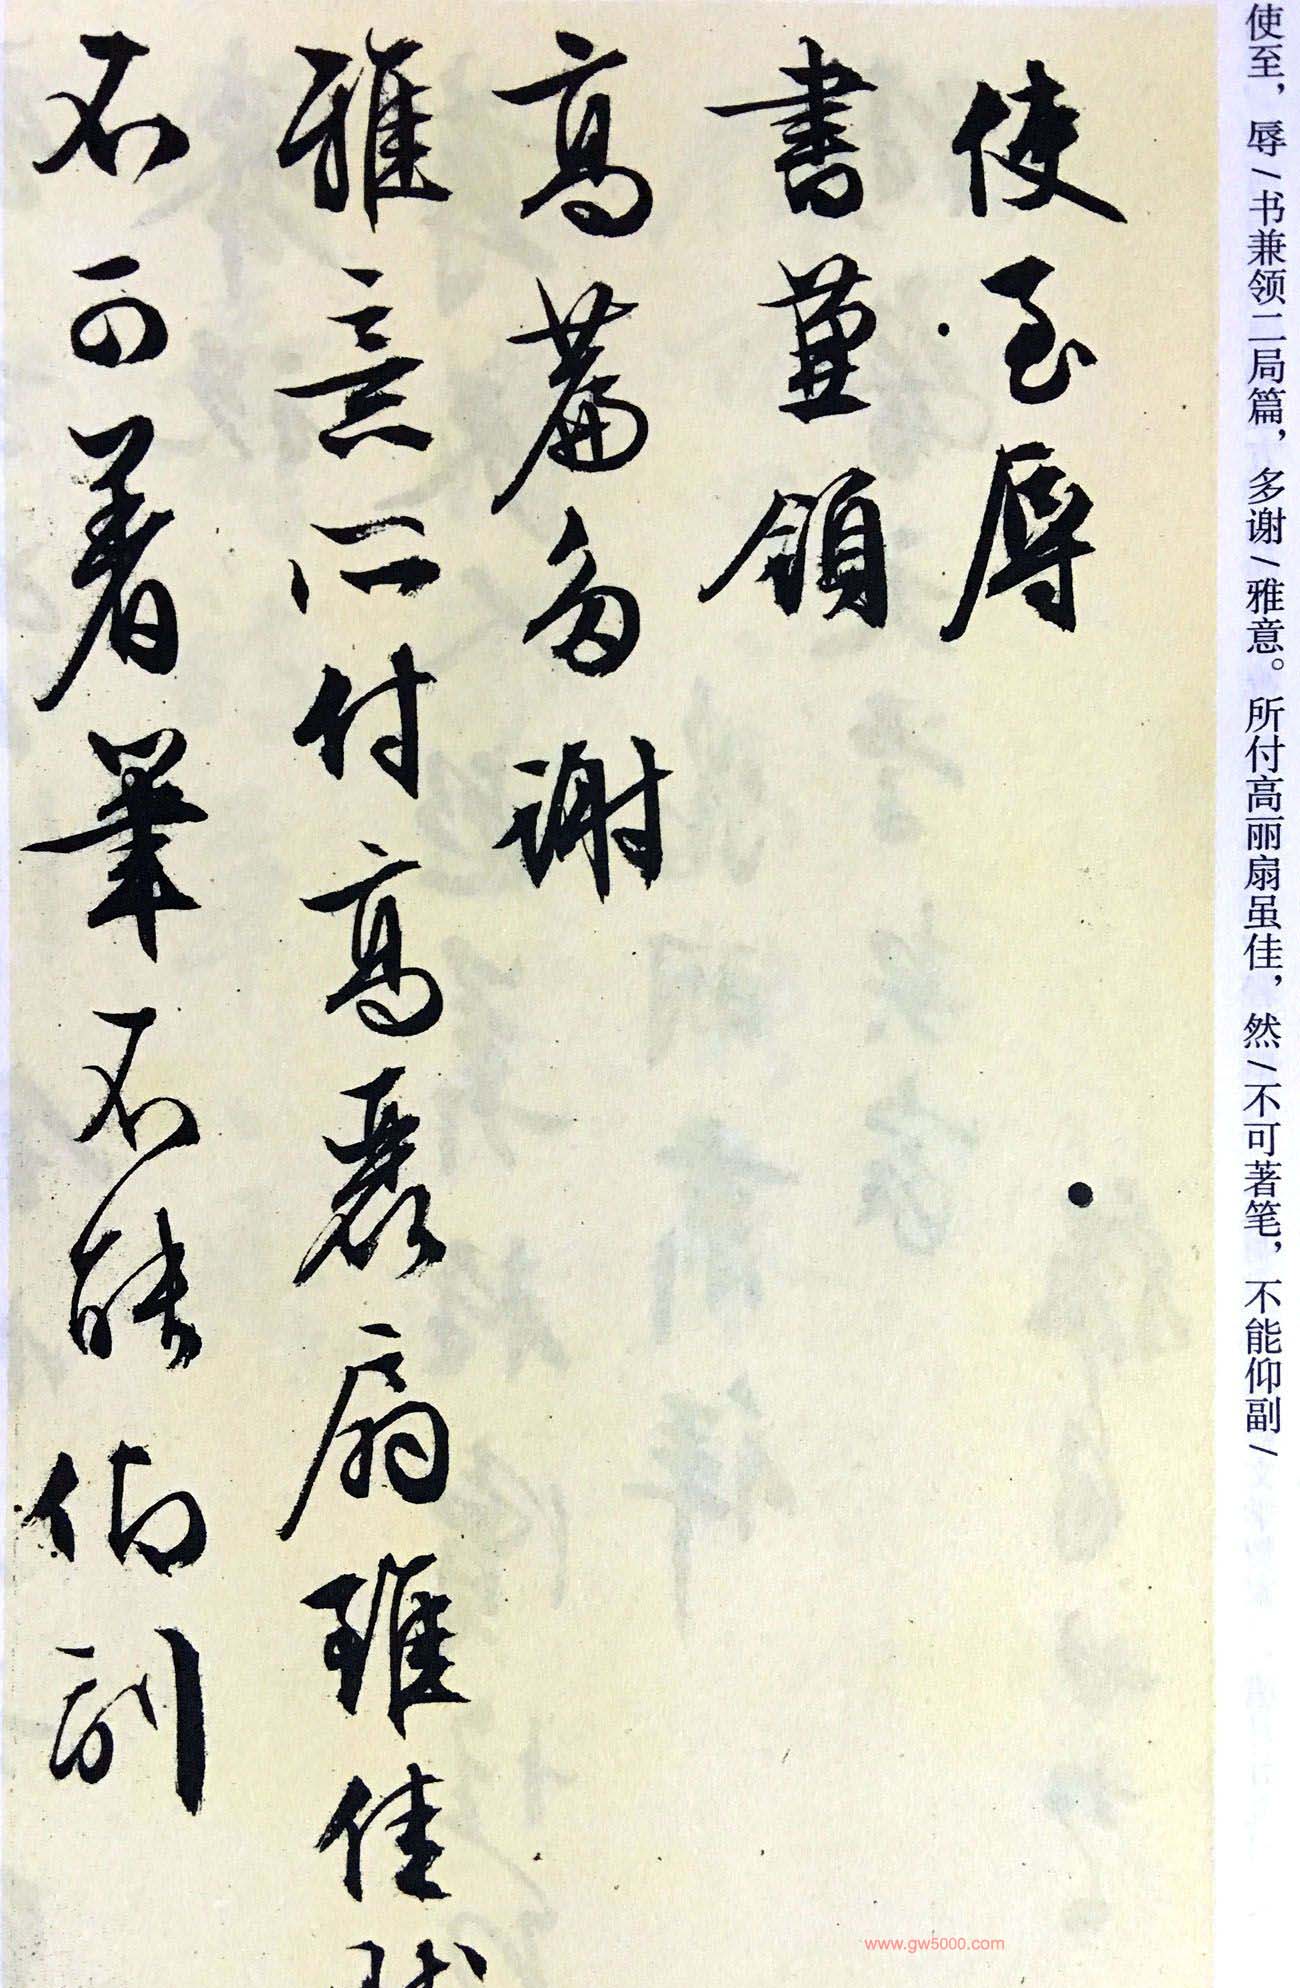 使至，辱/书兼领二局篇，多谢/雅意。所付高丽扇虽佳，然/不可著笔，不能仰副/
使至辱
書兼領
高篇多謝
雅意所付高麗扇雖佳然
不可著筆不能仰副
www.gw5000.com